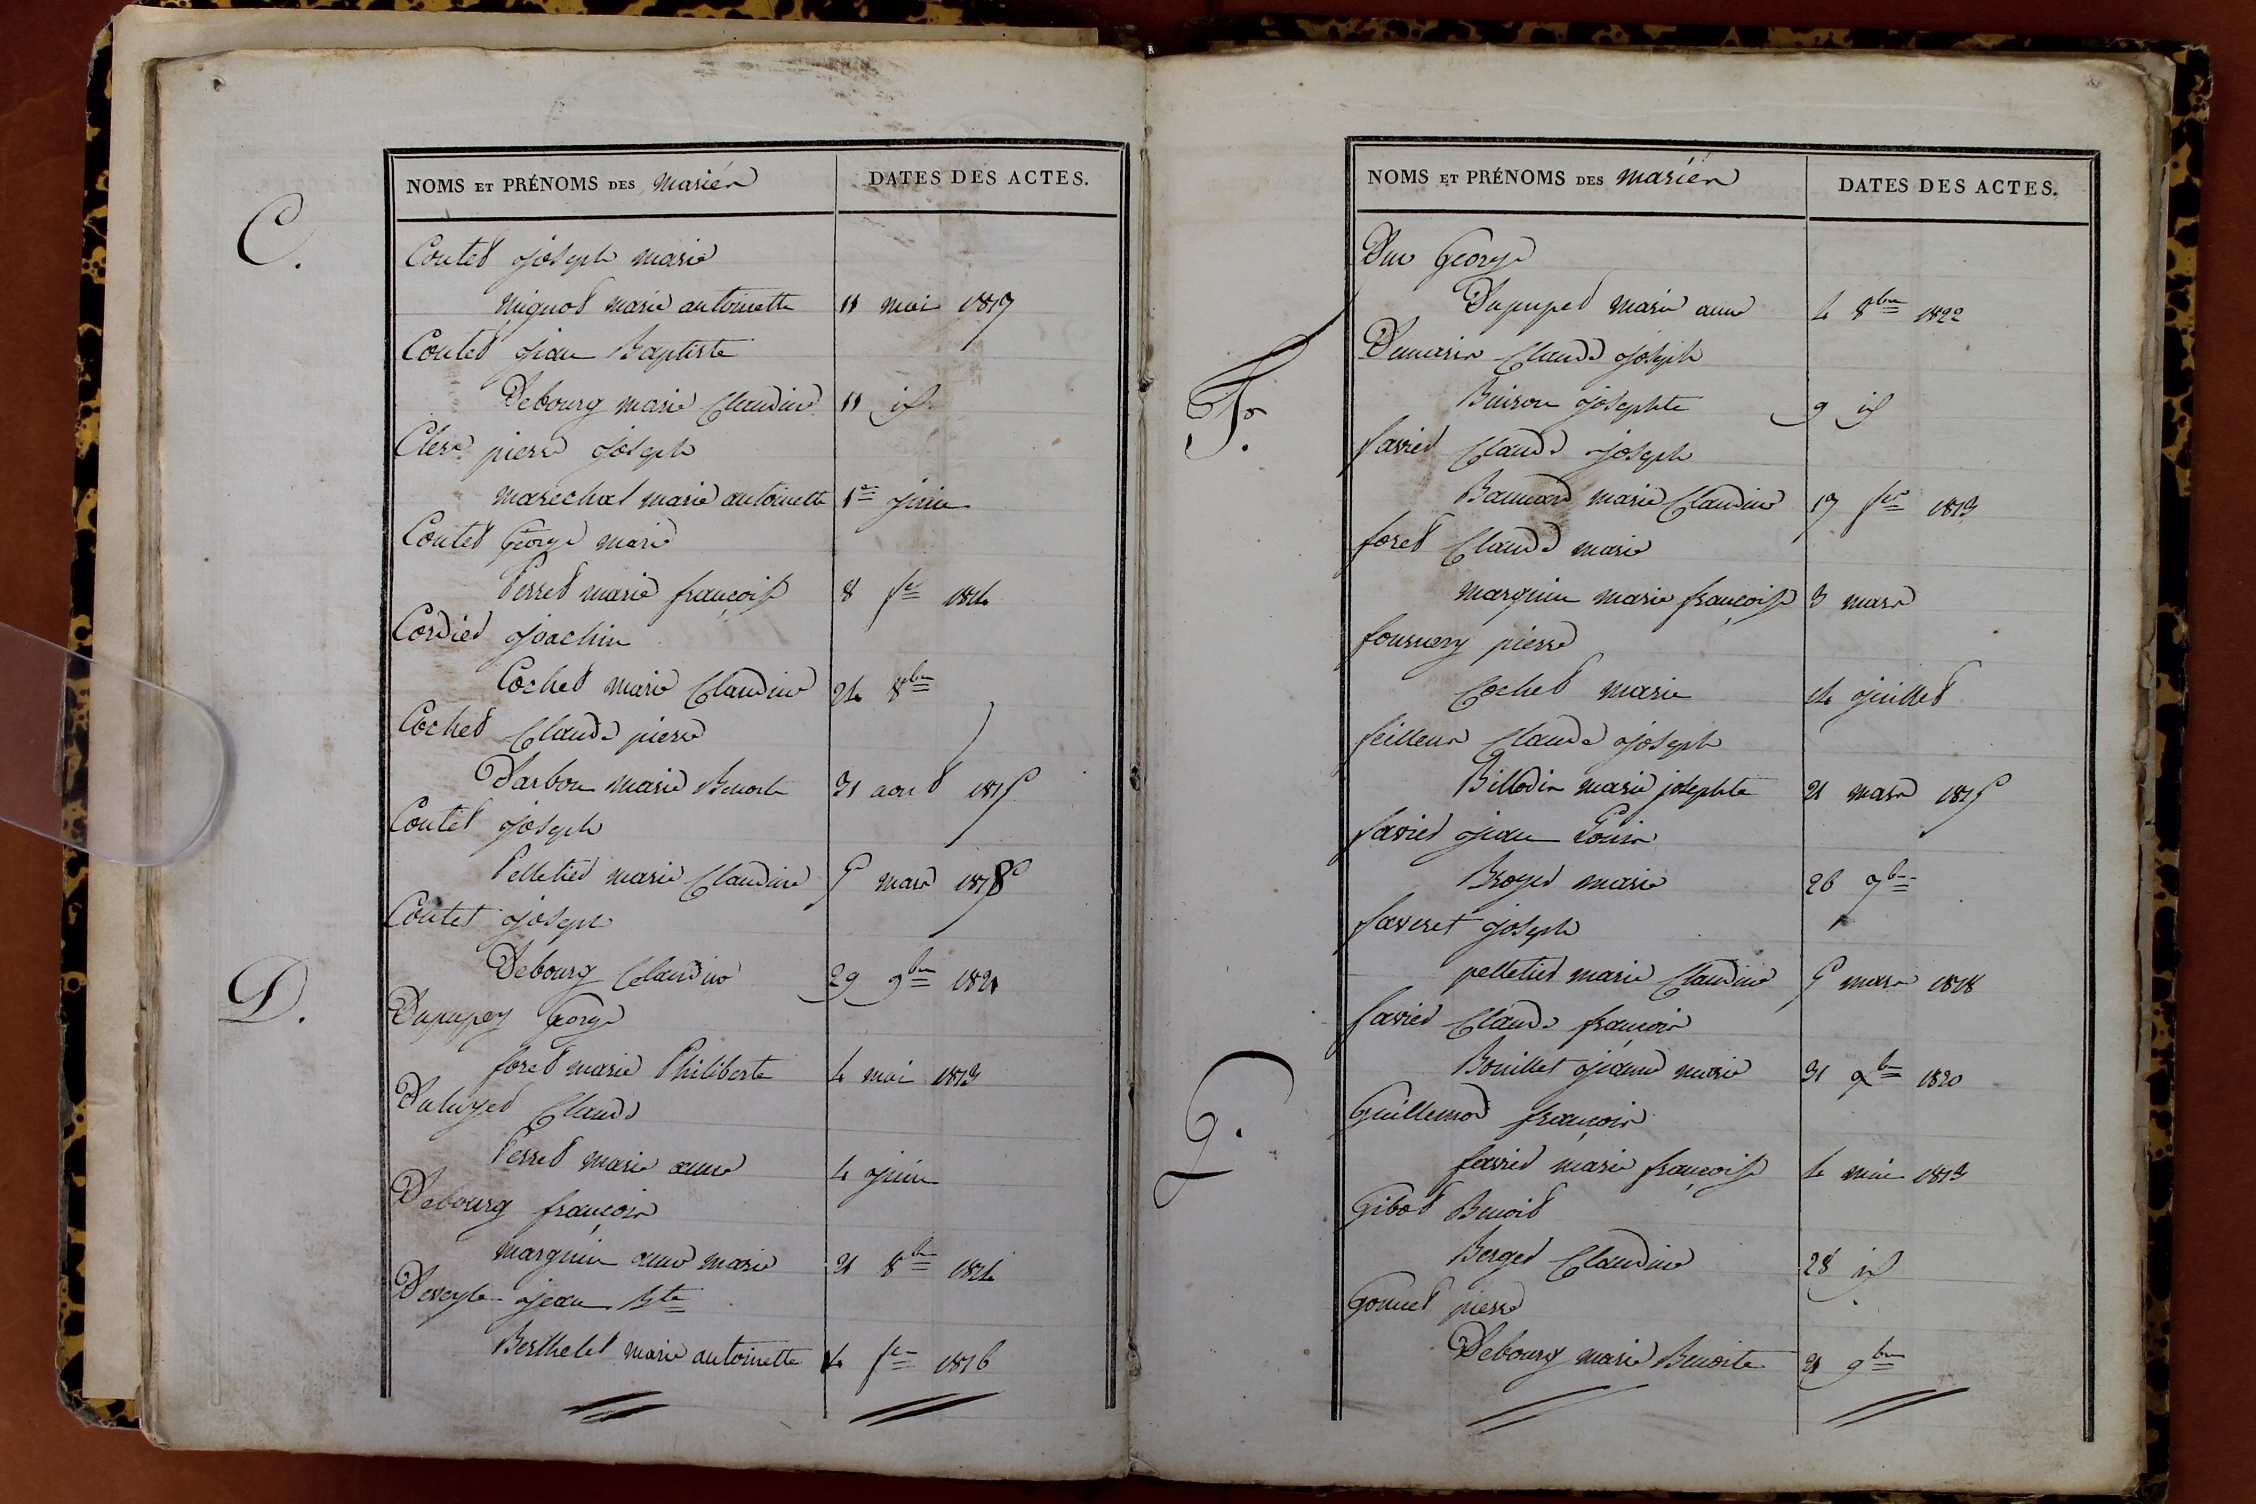 NOMS ET PRÉNOMS DES mariés DATES DES ACTES.
C.
Coutet joseph marie
mignot marie antoinette 11 mai 1817
Coutet jean Baptiste
Debourg marie Claudine 11 id
Clerc pierre joseph
marechal marie antoinette 1er juin
Coutet George marie
Perret marie françoise 8 fer 1814
Cordier joachim
Cochet marie Claudine 24 8bre
Cochet Claude pierre
Darbon marie Benoite 31 aout 1815
Coutet joseph
Pelletier marie Claudine 5 mars 1818
Coutet joseph
Debourg Claudine 29 9bre 1821
D.
Dupupey George
foret marie Philiberte 4 mai 1813
Claude
Perret marie anne 4 juin
Debourg françois
marguin anne marie 21 8bre 1814
Deveyle jean Bte
Berthelet marie antoinette 14 fer 1816
NOMS ET PRÉNOMS DES mariés DATES DES ACTES.
Duc George
Dupuped marie anne 4 8bre 1822
Dumarin Claude joseph
Buison josephte 9 id
F.
favier Claude joseph
marie Claudine 17 fer 1813
foret Claude marie
marguin marie françoise 3 mars
fournery pierre
Cochet marie 14 juillet
feilleur Claude joseph
Billodin marie josephte 21 mars 1815
favier jean Louis
Broyer marie 26 7bre
faveret joseph
pelletier marie Claudine 5 mars 1818
favier Claude françois
Bouillet jeanne marie 31 1820
G.
Guillemod françois
favier marie françoise 4 mai 1813
Gibod Benoit
Berger Claudine 28 id
Gonnet pierre
Debourg marie Benoite 21 9bre